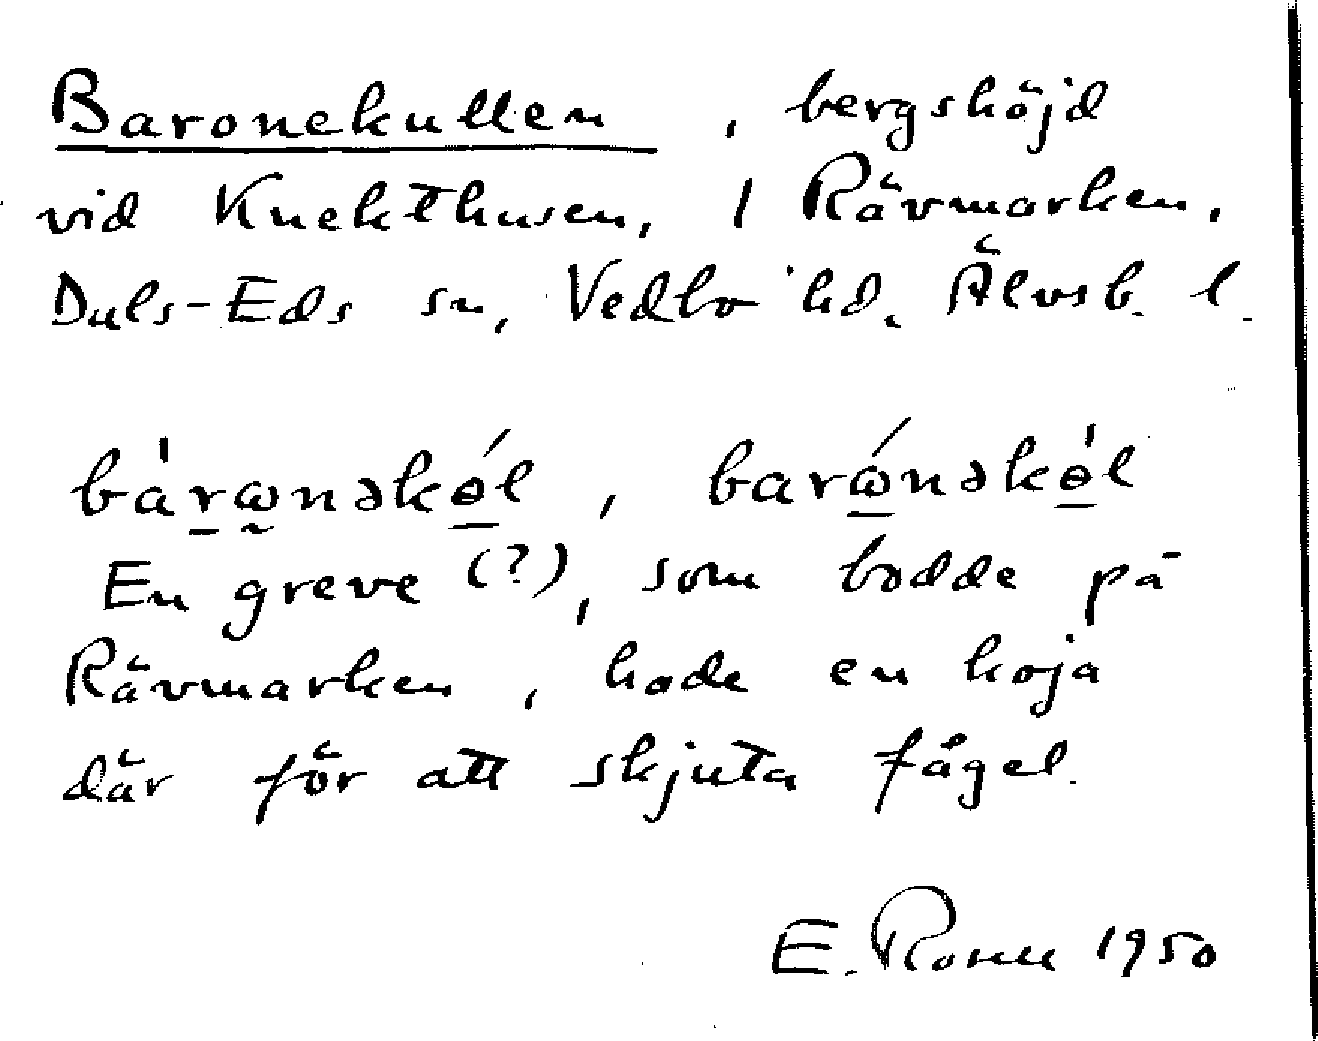 Baronekullen, bergshöjd
vid Knekthusen, 1 Rävmarken,
Dals-Eds sn, Vedbo hd. Älvsb. l.
bàrω̰nəkɵ́l, barώnəkɵ̀l
En greve (?), som bodde på
Rävmarken, hade en koja
där för att skjuta fågel.
E. 1950